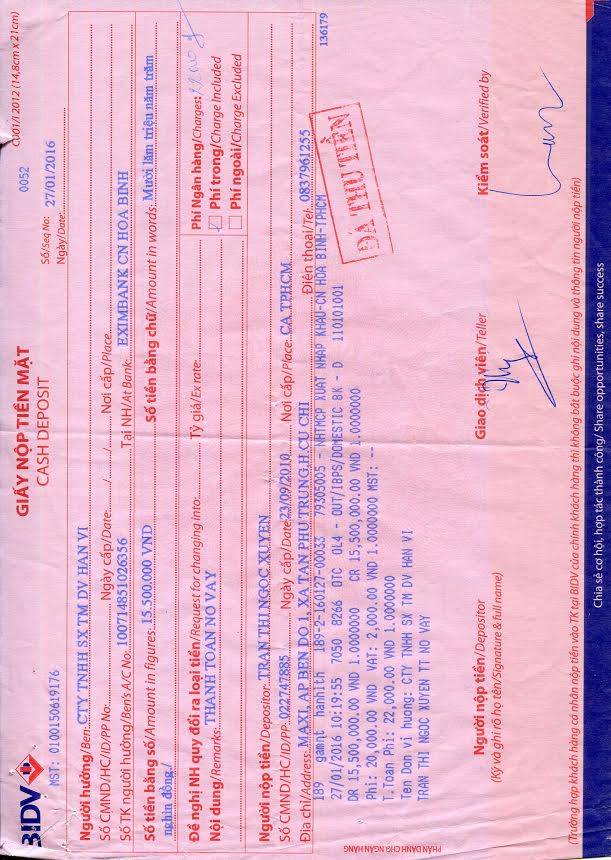 BIDV
MST: 0100150619176
GIẤY NỘP TIỀN MẶT
CASH DEPOSIT
C001/I 2012 (14,8cm x 21cm)
0052
Số/Seq No:
Ngày/Date: 27/01/2016
Người hưởng/Ben: CTY TNHH SX TM DV HAN VI
Số CMND/HC/ID/PP No: Ngày cấp/Date: / / Nơi cấp/Place
Số TK người hưởng/Ben's A/C No: 100714851026356 Tại NH/At Bank: EXIMBANK CN HOA BINH
Số tiền bằng số/Amount in figures: 15.500.000 VND Số tiền bằng chữ/Amount in words: Mười lăm triệu năm trăm
nghìn đồng./
Đề nghị NH quy đổi ra loại tiền/Request for changing into: Tỷ giá/Ex rate:
Nội dung/Remarks: THANH TOAN NO VAY
Phí Ngân hàng/Charges: 22000 đ
Phí trong/Charge Included
Phí ngoài/Charge Excluded
Người nộp tiền/Depositor: TRAN THI NGOC XUYEN
Số CMND/HC/ID/PP: 022747885 Ngày cấp/Date: 23/09/2010 Nơi cấp/Place: CA TPHCM
Địa chỉ/Address: MAXI, AP BEN DO 1, XA TAN PHU TRUNG,H CU CHI Điện thoại/Tel: 0837961255
136179
189 gamnt hanhlth 189-2-160127-00033 79305005 - NHTMCP XUAT NHAP KHAU-CN HOA BINH-TPHCM
27/01/2016 10:19:55 7050 B266 OTC OL4 - OUT/IBPS/DOMESTIC BK - D 110101001
DR 15,500,000.00 VND 1.0000000 CR 15,500,000.00 VND 1.0000000
Phi: 20,000.00 VND VAT: 2,000.00 VND 1.0000000 MST: --
T.Toan Phi: 22,000.00 VND 1.0000000
Ten Don vi Huong: CTY TNHH SX TM DV HAN VI
TRAN THI NGOC XUYEN TT NO VAY
ĐÃ THU TIỀN
PHẦN DÀNH CHO NGÂN HÀNG
Người nộp tiền/Depositor
(Ký và ghi rõ họ tên/Signature & full name)
Giao dịch viên/Teller
Kiểm soát/Verified by
(Trường hợp khách hàng cá nhân nộp tiền vào TK tại BIDV của chính khách hàng thì không bắt buộc ghi nội dung và thông tin người nộp tiền)
Chia sẻ cơ hội, hợp tác thành công/ Share opportunities, share success